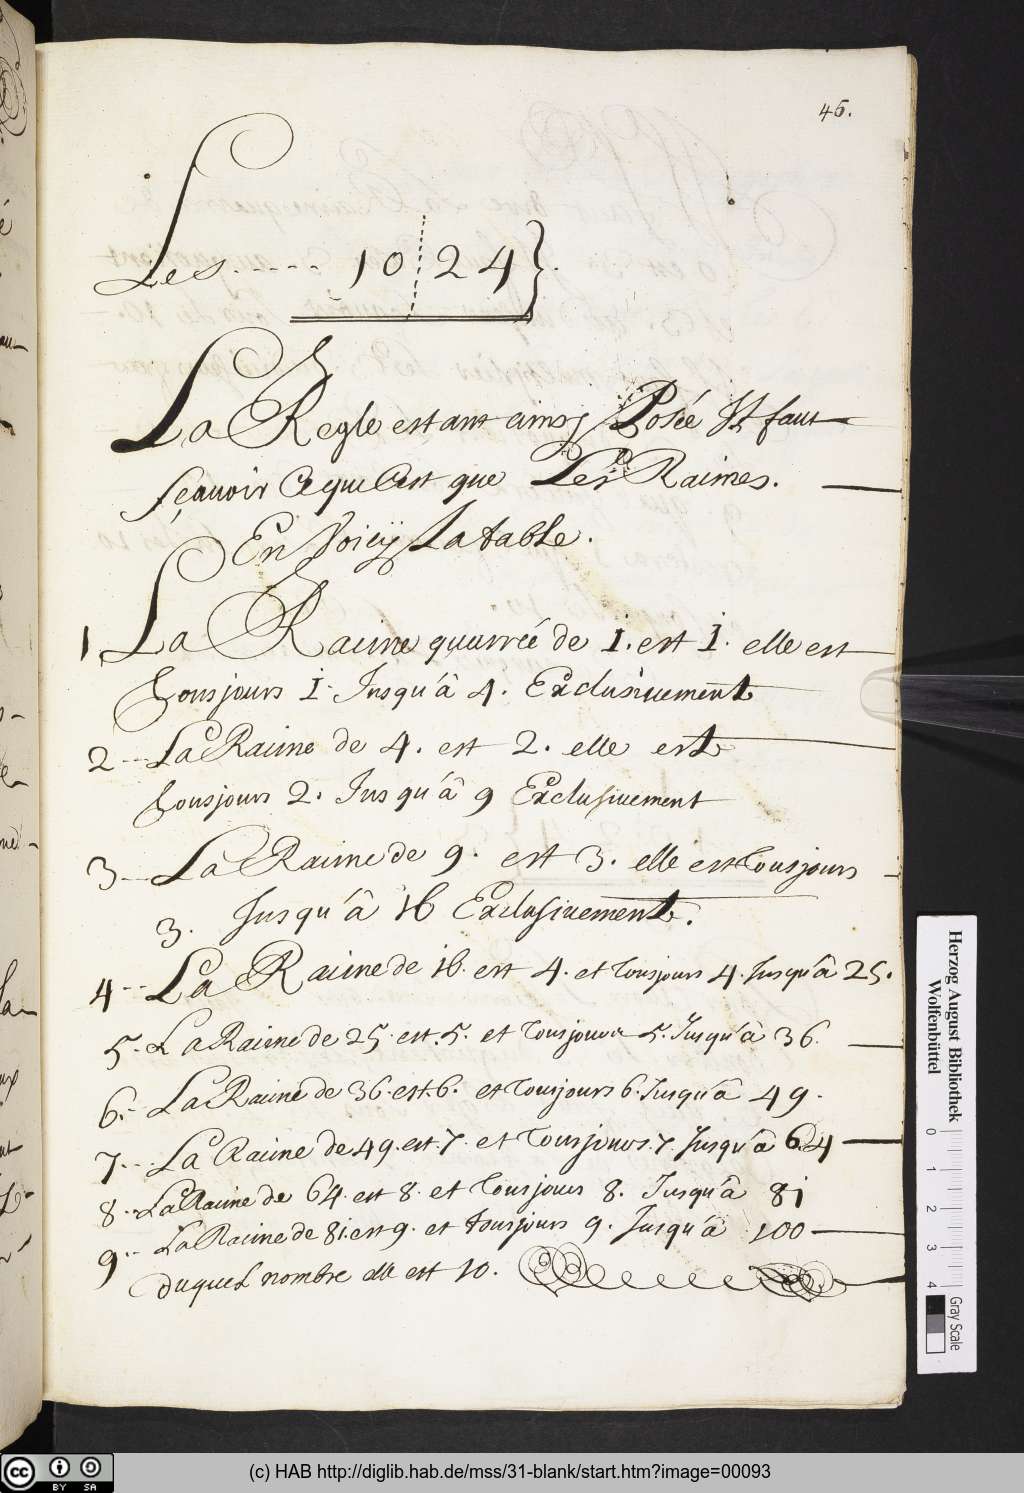 46.
Les ..... 10 24}.
La Regle estant ainsj Posée Il faut
sçauoir Ceque Cest que Les Raines.
En Voicÿ La table.
1. La Racine quarréé de 1. est 1. elle est
Tousjours 1. Jusqu'â 4. Exclusiuement
2 -- La Racine de 4. est 2. elle est
Tousjours 2. Jusqu'â 9 Exclusiuement
3 -- La Racine de 9. est 3. elle est Tousjours
3. Jusqu'â 16 Exclusiuement.
4 -- La Racine de 16. est 4. et Tousjours 4. Jusqu'â 25.
5. La Racine de 25. est. 5. et Tousjours 5. Jusqu'â 36.
6. - La Racine de 36. est. 6. et Tousjours 6. Jusqu'â 49.
7 -- La Racine de 49. est. 7. et Tousjours. 7 Jusqu'â 64
8 -- La Racine de 64. est 8. et Tousjours 8. Jusqu'â 81
9 -- La Racine de 81. est 9. et Tousjours 9. Jusqu'â 100
duquel nombre elle est 10.
Herzog August Bibliothek
Wolfenbüttel
0 1 2 3 4 Gray Scale
cc BY SA
(c) HAB http://diglib.hab.de/mss/31-blank/start.htm?image=00093